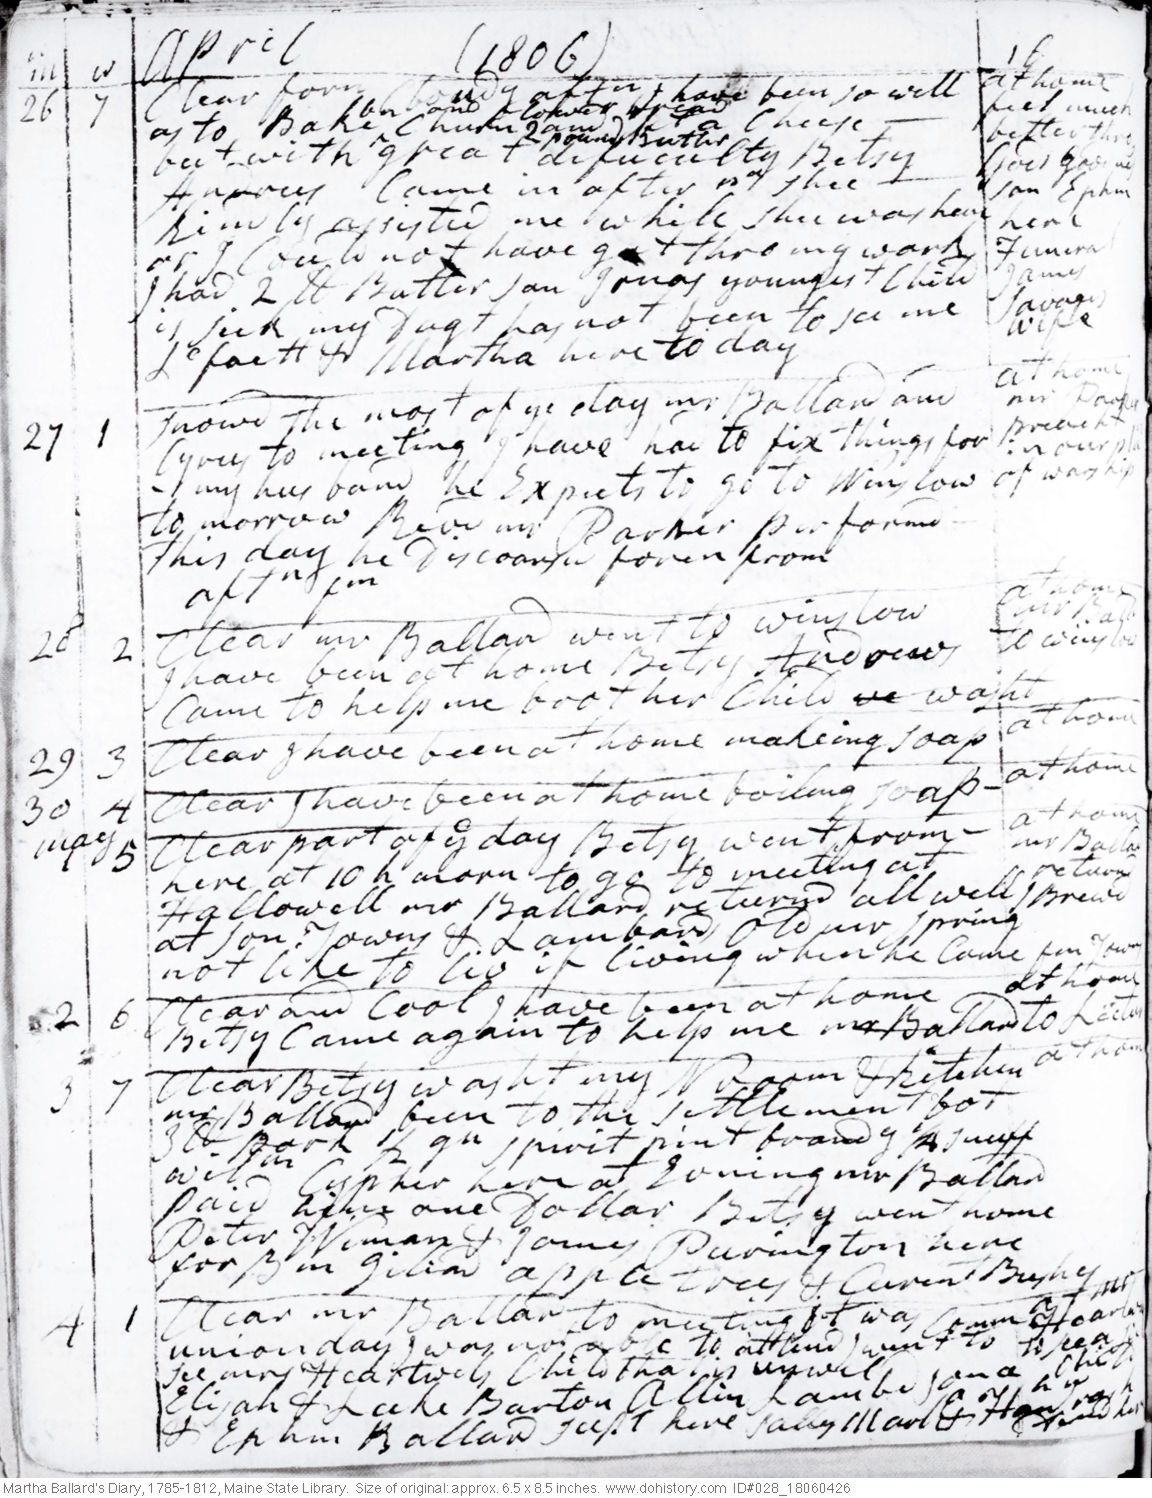 m w April (1806) 16
26 7 Clear forn Cloudy aftn I have been so well at home
as to Bake bn and flower bread Churn 2 pound Butter and a Cheese feel much
but with great dificculty Betsy better thro
Andrews Came in after nn shee Gods goodness
kindly assisted me while shee was here son Ephm here
or I Could not have got thro my work Funeral
I had 2 lb Butter son Jonas youngest Child James
is sick my Dagt has not been to see me Savages
Lafaett & Martha here to day wife
27 1 Snowd the most of ye day mr Ballard and at home
Cyrus to meeting I have had to fix things for mr Parker preacht
my husband he Expects to go to Winslow in our place of warship
to morrow Revd mr Parker performd
this day he Discoarsd foren from
aftn fm
28 2 Clear mr Ballard went to winslow at home
I have been at home Betsy Andrews mr Ballard
Came to help me brot her Child we washt to winslow
29 3 Clear I have been at home makeing soap at home
30 4 Clear I have been at home boiling soap at home
may 5 Clear part of ye day Betsy went from at home
here at 10 h morn to go to meeting at mr Ballard
Hallowell mr Ballard returnd all well I Brewd returnd
at son Towns & Lambards Old mr Spring
not like to liv if living when he Came fm Towns
2 6 Clear and Cool I have been at home at home
Betsy Came again to help me mr Ballard to Lecture
3 7 Clear Betsy washt my N Room & kitchen at home
mr Ballard been to the settlement bot
3 lb Pork ½ gn spirit pint brandy ¼ snuff
wilm Cypher here at Evining mr Ballard
paid him one Dollar Betsy went home
Peter Wiman & James Purington here
for B m Gilead apple trees & Curent Bushes
4 1 Clear mr Ballard to meeting it was Comm
union day I was not able to attend I went to
see mrs Heartwels Child that is unwel
Elijah & Luke Barton Allin Lambd
& Ephm Ballard slept here